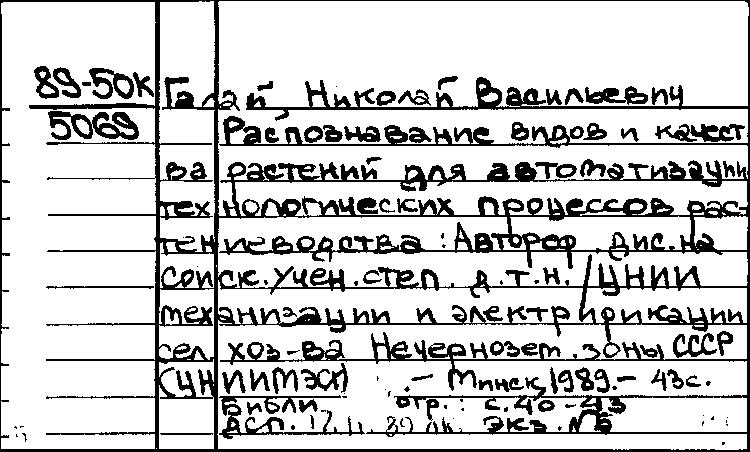 89-50к
5069
Галай, Николай Васильевич
Распознавание видов и качест
ва растений для автоматизации
технологических процессов рас
тениеводства: Автореф. дис. на
соиск. учен. степ. д.т.н. / ЦНИИ
механизации и электрификации
сел. хоз-ва Нечернозем. зоны СССР
(ЦНИИМЭСХ) .- Минск, 1989.- 43с.
Библи : с. 40-43
ДСП. экз. №6